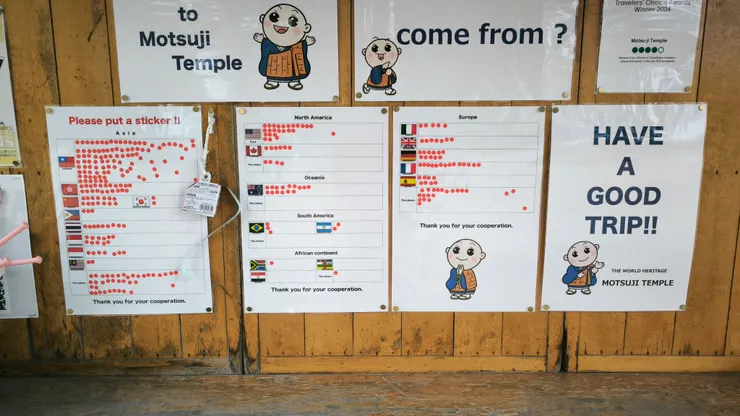 to
Motsuji
Temple
come from ?
Travelers' Choice Awards
Winner 2024
Motsuji Temple
Please put a sticker !!
Asia
Thank you for your cooperation.
North America
Oceania
South America
African continent
Thank you for your cooperation.
Europe
Thank you for your cooperation.
HAVE
A
GOOD
TRIP!!
THE WORLD HERITAGE
MOTSUJI TEMPLE